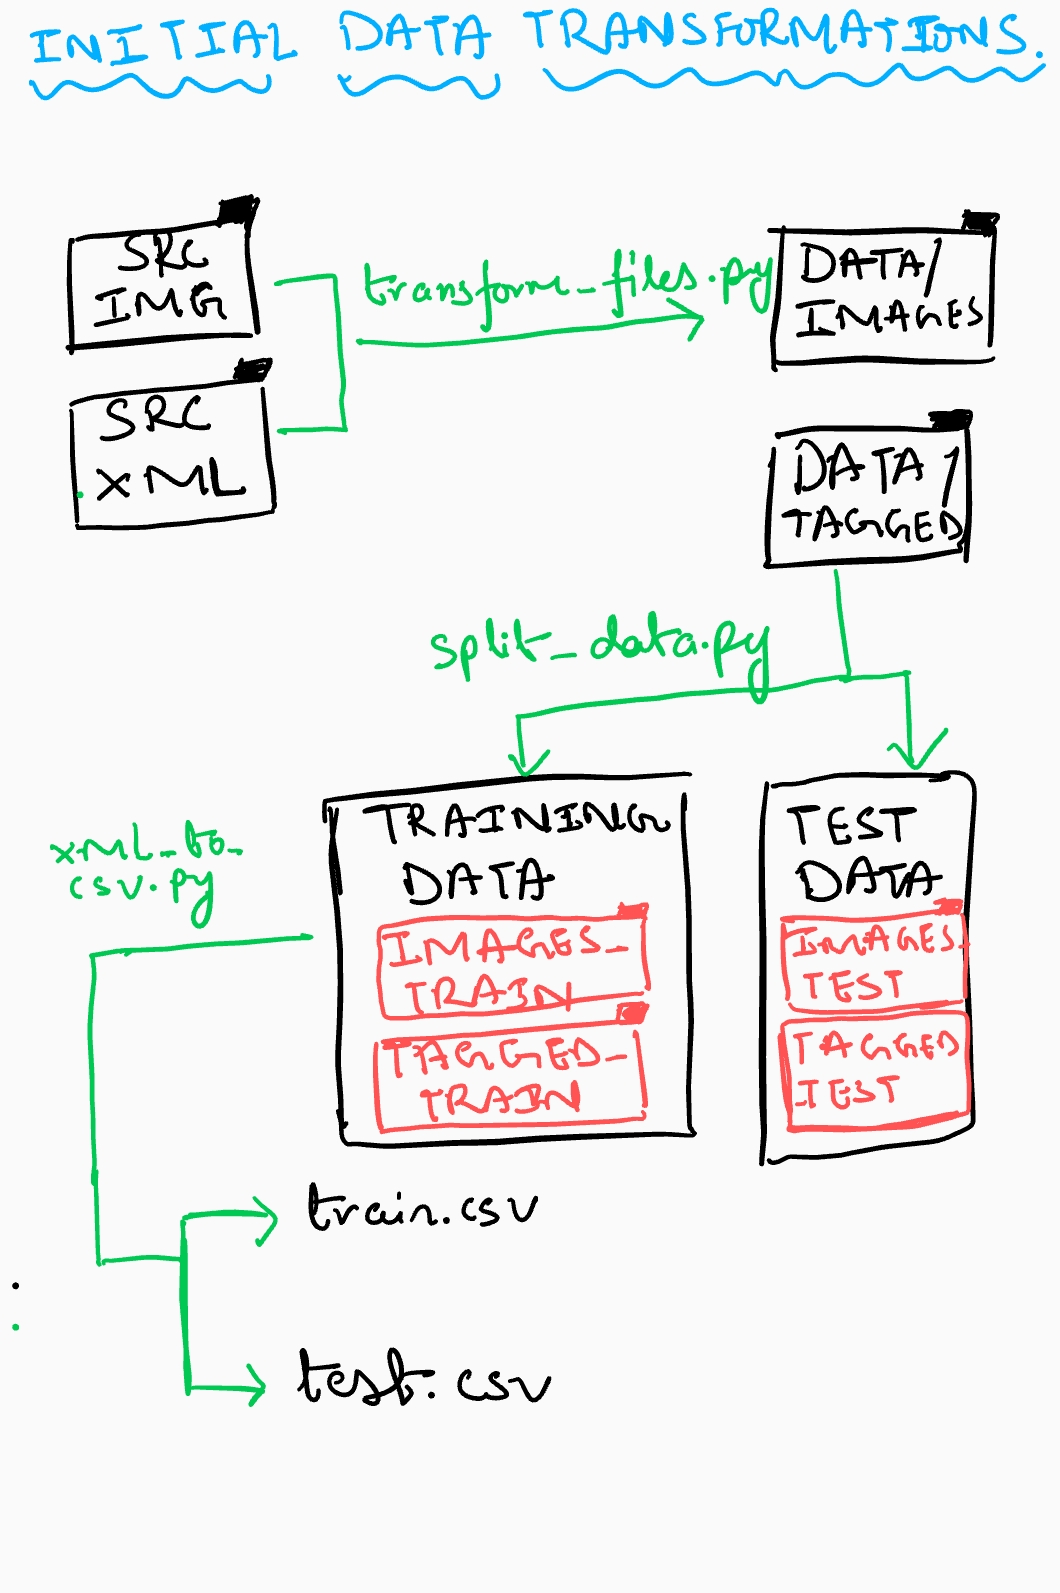 INITIAL DATA TRANSFORMATIONS.
SRC
IMG
transform_files.py
DATA/
IMAGES
SRC
XML
DATA/
TAGGED
split_data.py
TRAINING
DATA
IMAGES_
TRAIN
TAGGED_
TRAIN
TEST
DATA
IMAGES_
TEST
TAGGED
TEST
xml_to_
csv.py
train.csv
test.csv